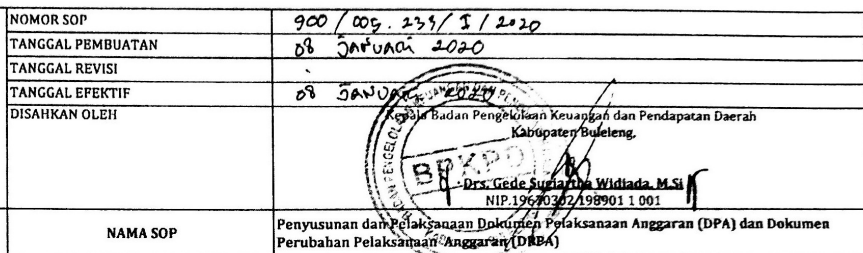 NOMOR SOP 900 / 005.239 / I / 2020
TANGGAL PEMBUATAN 08 Januari 2020
TANGGAL REVISI
TANGGAL EFEKTIF 08 Januari 2020
DISAHKAN OLEH Kepala Badan Pengelolaan Keuangan dan Pendapatan Daerah
Kabupaten Buleleng,
BPKPD
Drs. Gede Sugiartha Widiada, M.Si
NIP.19670302 198901 1 001
NAMA SOP Penyusunan dan Pelaksanaan Dokumen Pelaksanaan Anggaran (DPA) dan Dokumen
Perubahan Pelaksanaan Anggaran (DPPA)